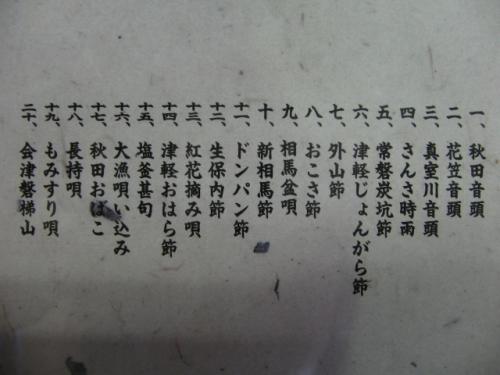 一、秋田音頭
二、花笠音頭
三、真室川音頭
四、さんさ時雨
五、常磐炭坑節
六、津軽じょんがら節
七、外山節
八、おこさ節
九、相馬盆唄
十、新相馬節
十一、ドンパン節
十二、生保内節
十三、紅花摘み唄
十四、津軽おはら節
十五、塩釜甚句
十六、大漁唄い込み
十七、秋田おばこ
十八、長持唄
十九、もみすり唄
二十、会津磐梯山